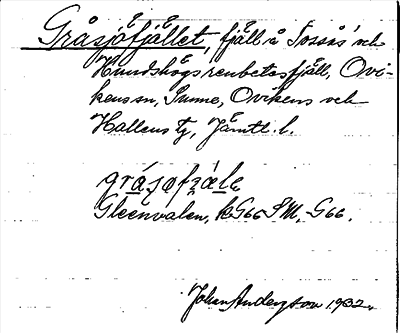 Gråsjöfjället, fjäll i Tossås' och
Hundshögs renbetesfjäll, Ovi-
kens sn, Sunne, Ovikens och
Hallens tg, Jämtl. l.
gråsjofzäle
Gleenvalen, k G66 SM, G66.
Johan Anderzson 1932.